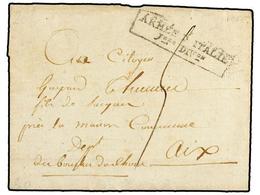 ARMÉE D'ITALIE
Jere DIVon
Au Citoyen
Gaspard
fils de Jacques
près la maison Commune
dept
des bouches du rhône Aix